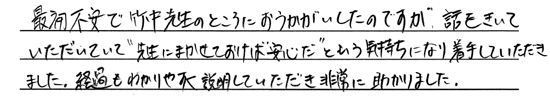 最初不安で竹中先生のところにおうかがいしたのですが、話をきいて
いただいていて"先生にまかせておけば安心だ"という気持ちになり着手していただき
ました。経過もわかりやすく説明していただき非常に助かりました。